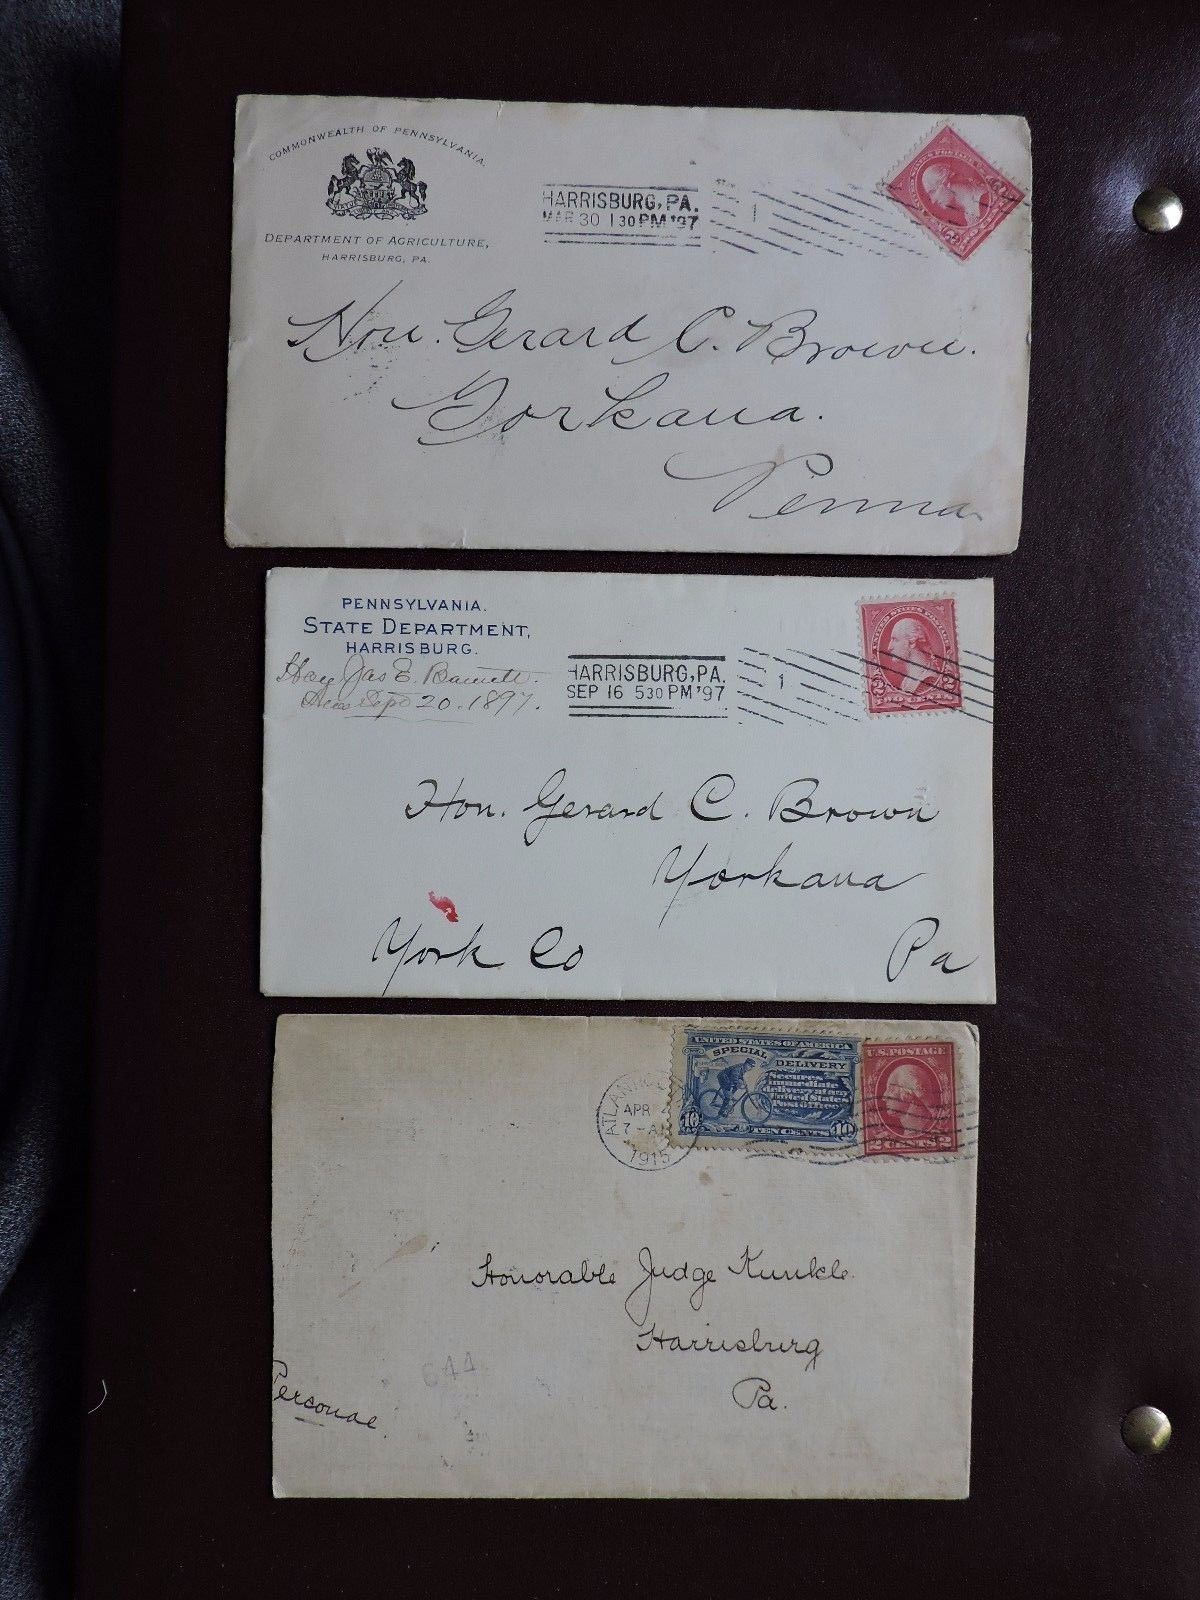 COMMONWEALTH OF PENNSYLVANIA.
DEPARTMENT OF AGRICULTURE,
HARRISBURG, PA.
HARRISBURG, PA.
MAR 30 1 30 PM '97
1
Hon. Gerard C. Brown.
Yorkana.
Penna
PENNSYLVANIA.
STATE DEPARTMENT,
HARRISBURG.
Jas E. Barnett.
Sept 20. 1897.
HARRISBURG, PA.
SEP 16 5 30 PM '97
1
UNITED STATES POSTAGE
2 2
TWO CENTS
Hon. Gerard C. Brown
Yorkana
York Co Pa
ATLANTIC
APR
7-A
1915
UNITED STATES OF AMERICA
SPECIAL DELIVERY
Secures
immediate
delivery at any
United States
Post office
10 TEN CENTS 10
U.S. POSTAGE
2 CENTS 2
Honorable Judge Kunkle.
Harrisburg
Pa.
644
Personal.